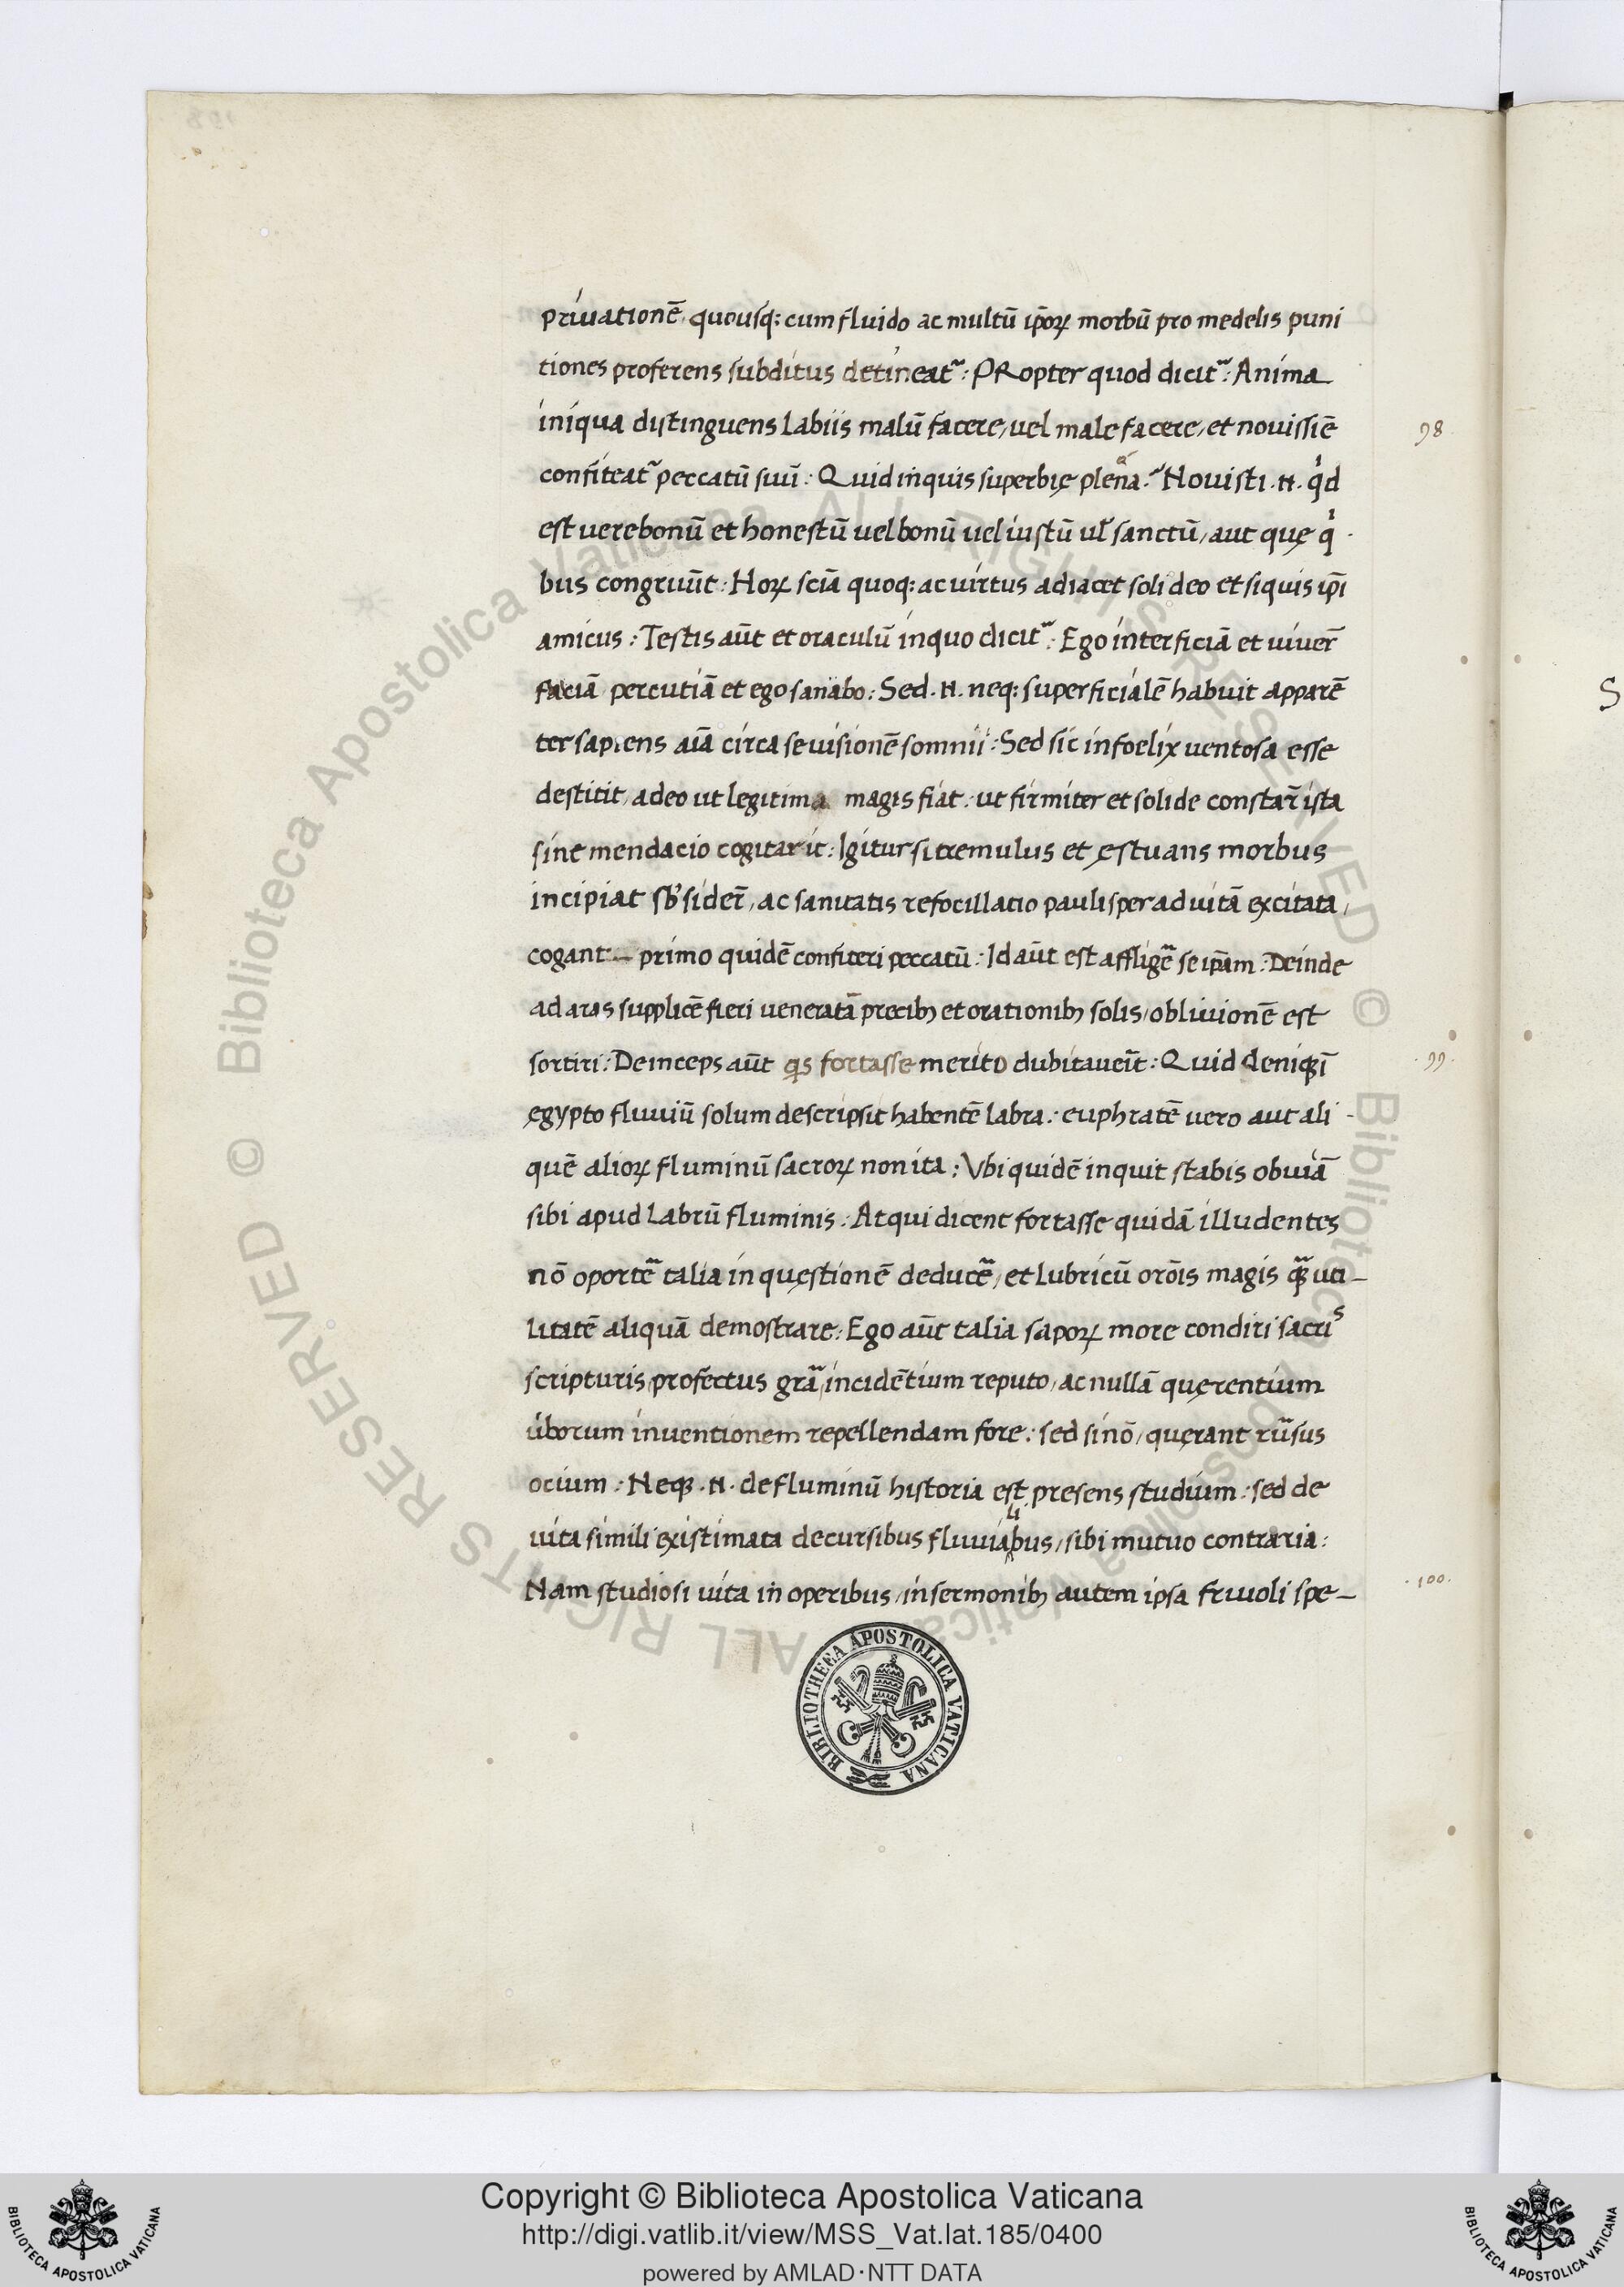 priuationē, quousq; cum fluido ac multū ip̄oꝝ morbū pro medelis puni
tiones proferens subditus detineat᷑: PRopter quod dicit᷑: Anima
iniqua distinguens labiis malū facere, uel male facere, et nouissiē
98
confiteat᷑ peccatū suū: Quid inquis superbię plena: Nouisti .n. qͥd
est uere bonū et honestū uel bonū uel iustū ul̄ sanctū, aut quę qͥ -
bus congruūt: Hoꝝ sciā quoq; ac uirtus adiacet soli deo et siquis ip̄i
amicus: Testis aūt et oraculū in quo dicit᷑: Ego interficiā et uiuer̄
faciā percutiā et ego sanabo: Sed .n. neq; superficialē habuit apparē
ter sapiens aīa circa se uisionē somnii: Sed sic infoelix uentosa esse
destitit, adeo ut legitima magis fiat: ut firmiter et solide constar̄ ista
sine mendacio cogitarit: Igitur si tremulus et ęstuans morbus
incipiat sb̓sider̄, ac sanitatis refocillatio paulisper ad uitā excitata,
cogant — primo quidē confiteri peccatū: Id aūt est affligē se ip̄am: Deinde
ad aras supplicē fieri ueneratā precibꝫ et orationibꝫ solis, obliuionē est
sortiri: Deinceps aūt qis fortasse merito dubitaueīt: Quid deniqꝫ ī
.99.
ęgypto fluuiū solum descripsit habentē labra: euphratē uero aut ali -
quē alioꝝ fluminū sacroꝝ non ita: Vbi quidē inquit stabis obuiā
sibi apud labrū fluminis: Atqui dicent fortasse quidā illudentes
nō oportē talia in quęstionē deducē, et lubricū orōis magis qꝫ uti —
litatē aliquā demostrare: Ego aūt talia sapoꝝ more condiri sacris
scripturis, profectus grā, incidētium reputo, ac nullā quęrentium
ūborum inuentionem repellendam fore: sed sinō, quęrant rūsus
ocium: Neqꝫ .n. de fluminū historia est presens studium: sed de
uita simili existimata decursibus fluuialibus, sibi mutuo contraria:
Nam studiosi uita in operibus, in sermonibꝫ autem ipsa friuoli spe —
.100.
BIBLIOTHECA APOSTOLICA VATICANA
S
© Biblioteca Apostolica Vaticana ALL RIGHTS RESERVED © Biblioteca Apostolica Vaticana ALL RIGHTS RESERVED
Copyright © Biblioteca Apostolica Vaticana
http://digi.vatlib.it/view/MSS_Vat.lat.185/0400
powered by AMLAD·NTT DATA
BIBLIOTECA APOSTOLICA VATICANA
BIBLIOTECA APOSTOLICA VATICANA